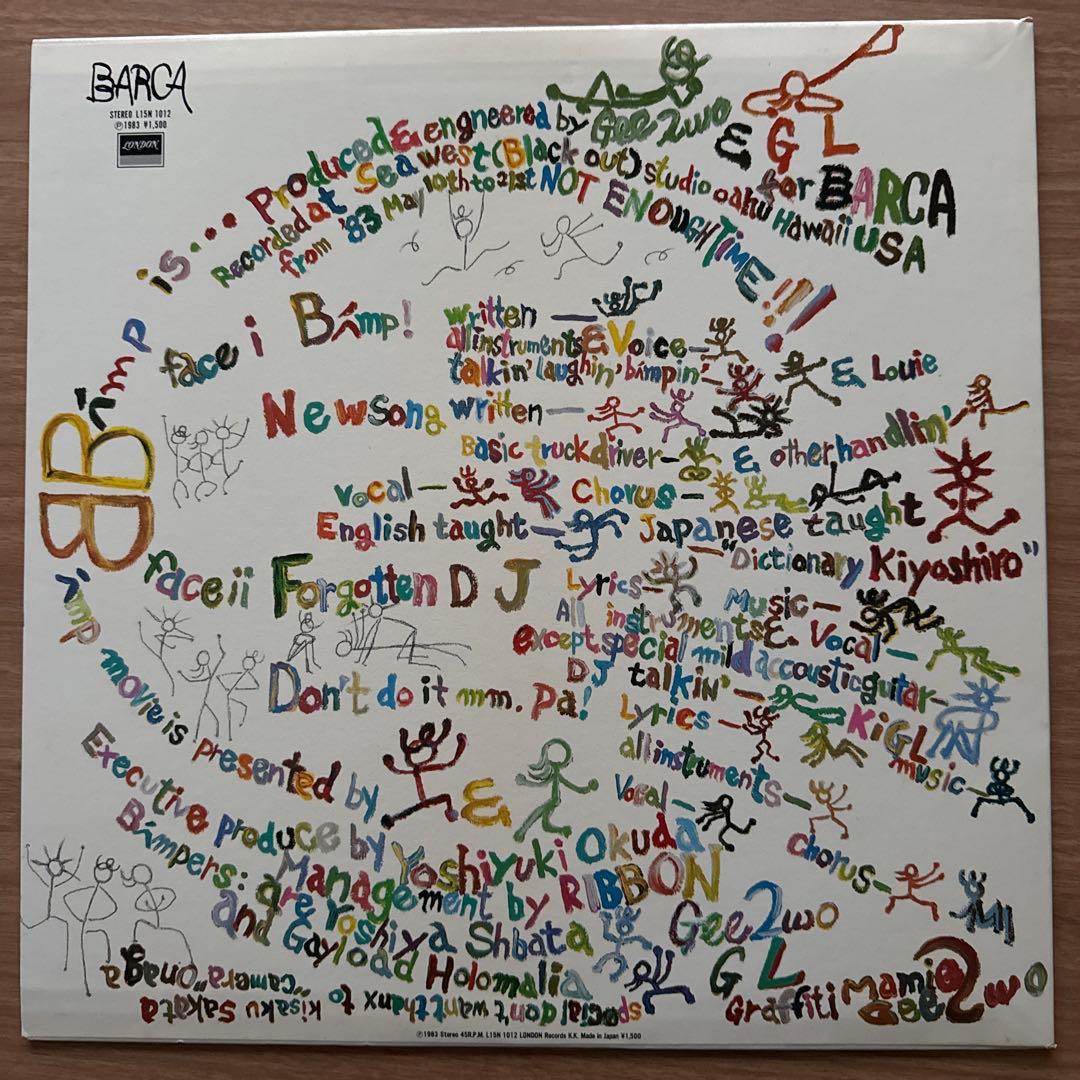 BARCA
STEREO L15N 1012
℗1983 ¥1,500
LONDON
Bímp is... Produced & engneered by Gee2wo & GL for BARCA
Recorded at Sea west (Black out) studio oahu Hawaii USA
from '83 May 10th to 21st NOT ENOUGH TIME!!!
face i Bímp! written —
all instruments & Voice —
talkin' laughin' bímpin' — & Louie
New song written —
Basic truck driver — & other handlin'
vocal — Chorus —
English taught — Japanese taught
— "Dictionary Kiyoshiro"
face ii Forgotten DJ Lyrics — Music —
All instruments & Vocal —
except special mild accoustic guitar —
DJ talkin' — KiGL
Don't do it mm. Pa! Lyrics — music —
all instruments —
Vocal — Chorus —
Bímp movie is presented by &
Executive produce by Yoshiyuki Okuda
Management by RIBBON
Bímpers: are Toshiya Shbata Gee2wo
and Gayload Holomalia GL
special don't want thanx to kisaku Sakata
"camera" Onaga
Graffiti Mami Gee2wo
℗1983 Stereo 45R.P.M. L15N 1012 LONDON Records K.K. Made in Japan ¥1,500